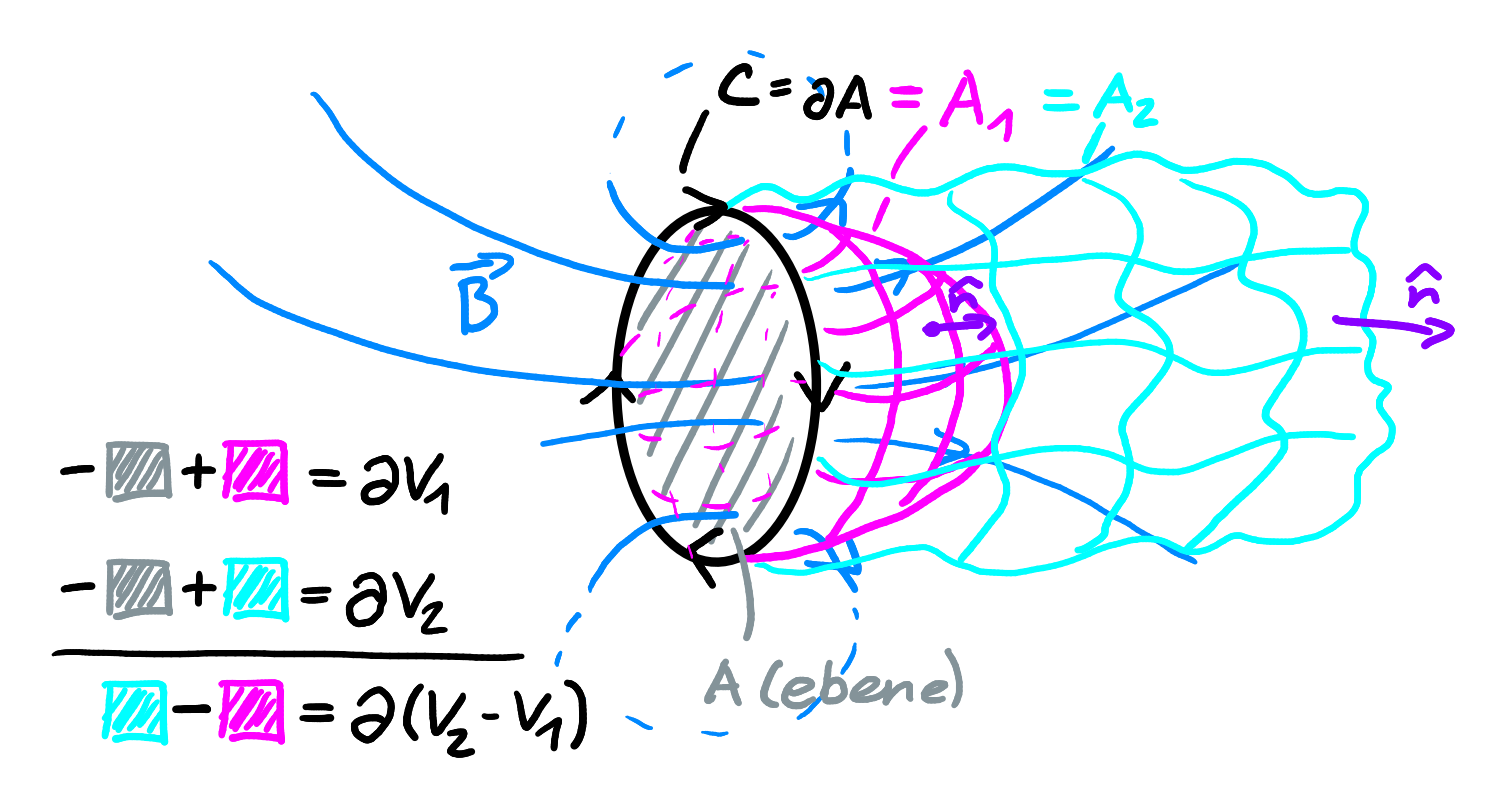 C = ∂A = A₁ = A₂
B⃗
n̂
n̂
- + = ∂V₁
- + = ∂V₂
- = ∂(V₂ - V₁)
A (ebene)